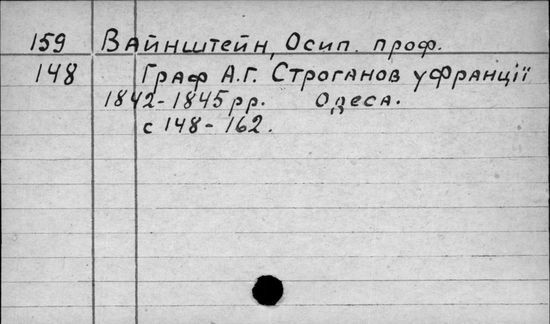 159 Вайнштейн, Осип. проф.
148 Граф А.Г. Строганов у Франції
1842-1845 рр. Одеса.
с 148-162.